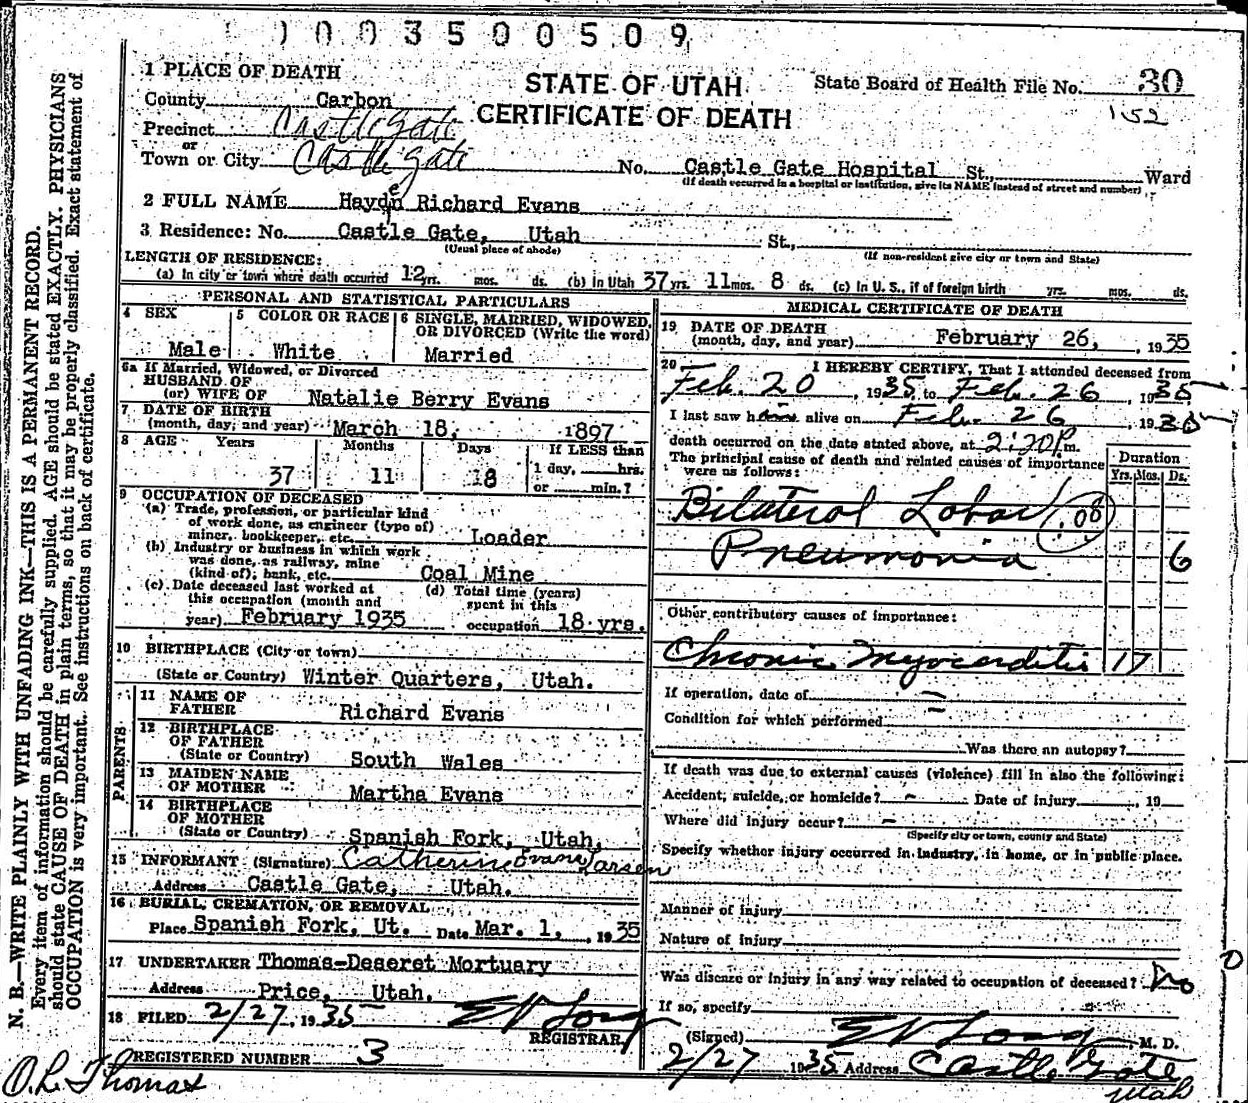 1003500509
1 PLACE OF DEATH
STATE OF UTAH
CERTIFICATE OF DEATH
State Board of Health File No. 30
152
County Carbon
Precinct Castle Gate
or
Town or City Castle gate
No. Castle Gate Hospital St., Ward
(If death occurred in a hospital or institution, give its NAME instead of street and number)
2 FULL NAME Haydn Richard Evans
e
3 Residence: No. Castle Gate, Utah St.,
(Usual place of abode)
(If non-resident give city or town and State)
LENGTH OF RESIDENCE:
(a) In city or town where death occurred 12 yrs. mos. ds. (b) in Utah 37 yrs. 11 mos. 8 ds. (c) In U. S., if of foreign birth yrs. mos. ds.
PERSONAL AND STATISTICAL PARTICULARS
4 SEX
Male
5 COLOR OR RACE
White
6 SINGLE, MARRIED, WIDOWED, OR DIVORCED (Write the word)
Married
6a If Married, Widowed, or Divorced
HUSBAND OF
(or) WIFE OF Natalie Berry Evans
7 DATE OF BIRTH
(month, day, and year) March 18, 1897
8 AGE Years Months Days If LESS than
37 11 18 1 day, hrs.
or min.?
9 OCCUPATION OF DECEASED
(a) Trade, profession, or particular kind
of work done, as engineer (type of)
miner, bookkeeper, etc. Loader
(b) Industry or business in which work
was done, as railway, mine
(kind of); bank, etc. Coal Mine
(c) Date deceased last worked at
this occupation (month and
year) February 1935
(d) Total time (years)
spent in this
occupation 18 yrs.
10 BIRTHPLACE (City or town)
(State or Country) Winter Quarters, Utah.
PARENTS
11 NAME OF
FATHER Richard Evans
12 BIRTHPLACE
OF FATHER
(State or Country) South Wales
13 MAIDEN NAME
OF MOTHER Martha Evans
14 BIRTHPLACE
OF MOTHER
(State or Country) Spanish Fork, Utah,
15 INFORMANT (Signature) Catherine Evans Larsen
Address Castle Gate, Utah.
16 BURIAL, CREMATION, OR REMOVAL
Place Spanish Fork, Ut. Date Mar. 1, 1935
17 UNDERTAKER Thomas-Deseret Mortuary
Address Price, Utah.
18 FILED 2/27, 1935 E V Long
REGISTRAR
REGISTERED NUMBER 3
O. L. Thomas
MEDICAL CERTIFICATE OF DEATH
19 DATE OF DEATH
(month, day, and year) February 26, , 1935
20 I HEREBY CERTIFY, That I attended deceased from
Feb. 20, 1935 to Feb. 26, 1935
I last saw him alive on Feb. 26, 1935
death occurred on the date stated above, at 2:20 P.m.
The principal cause of death and related causes of importance
were as follows:
Duration
Yrs. Mos. Ds.
Bilateral Lobar 108
Pneumonia 6
Other contributory causes of importance:
Chronic Myocarditis 17
If operation, date of
Condition for which performed
Was there an autopsy?
If death was due to external causes (violence) fill in also the following:
Accident, suicide, or homicide? - Date of injury , 19
Where did injury occur? -
(Specify city or town, county and State)
Specify whether injury occurred in industry, in home, or in public place.
Manner of injury
Nature of injury
Was disease or injury in any way related to occupation of deceased? No
If so, specify
(Signed) E V Long, M. D.
2/27 1935 Address Castle Gate
Utah
N. B.—WRITE PLAINLY WITH UNFADING INK—THIS IS A PERMANENT RECORD.
Every item of information should be carefully supplied. AGE should be stated EXACTLY. PHYSICIANS
should state CAUSE OF DEATH in plain terms, so that it may be properly classified. Exact statement of
OCCUPATION is very important. See instructions on back of certificate.